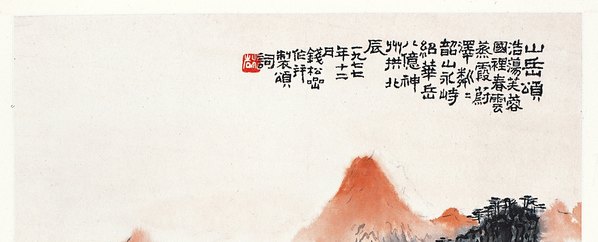 山岳頌
浩蕩芙蓉
國裡春雲
蒸霞蔚
澤粼〻
韶山永峙
紹華岳
八億神
州拱北
辰
一九七七
年十二
月
錢松喦
作并
製頌
詞